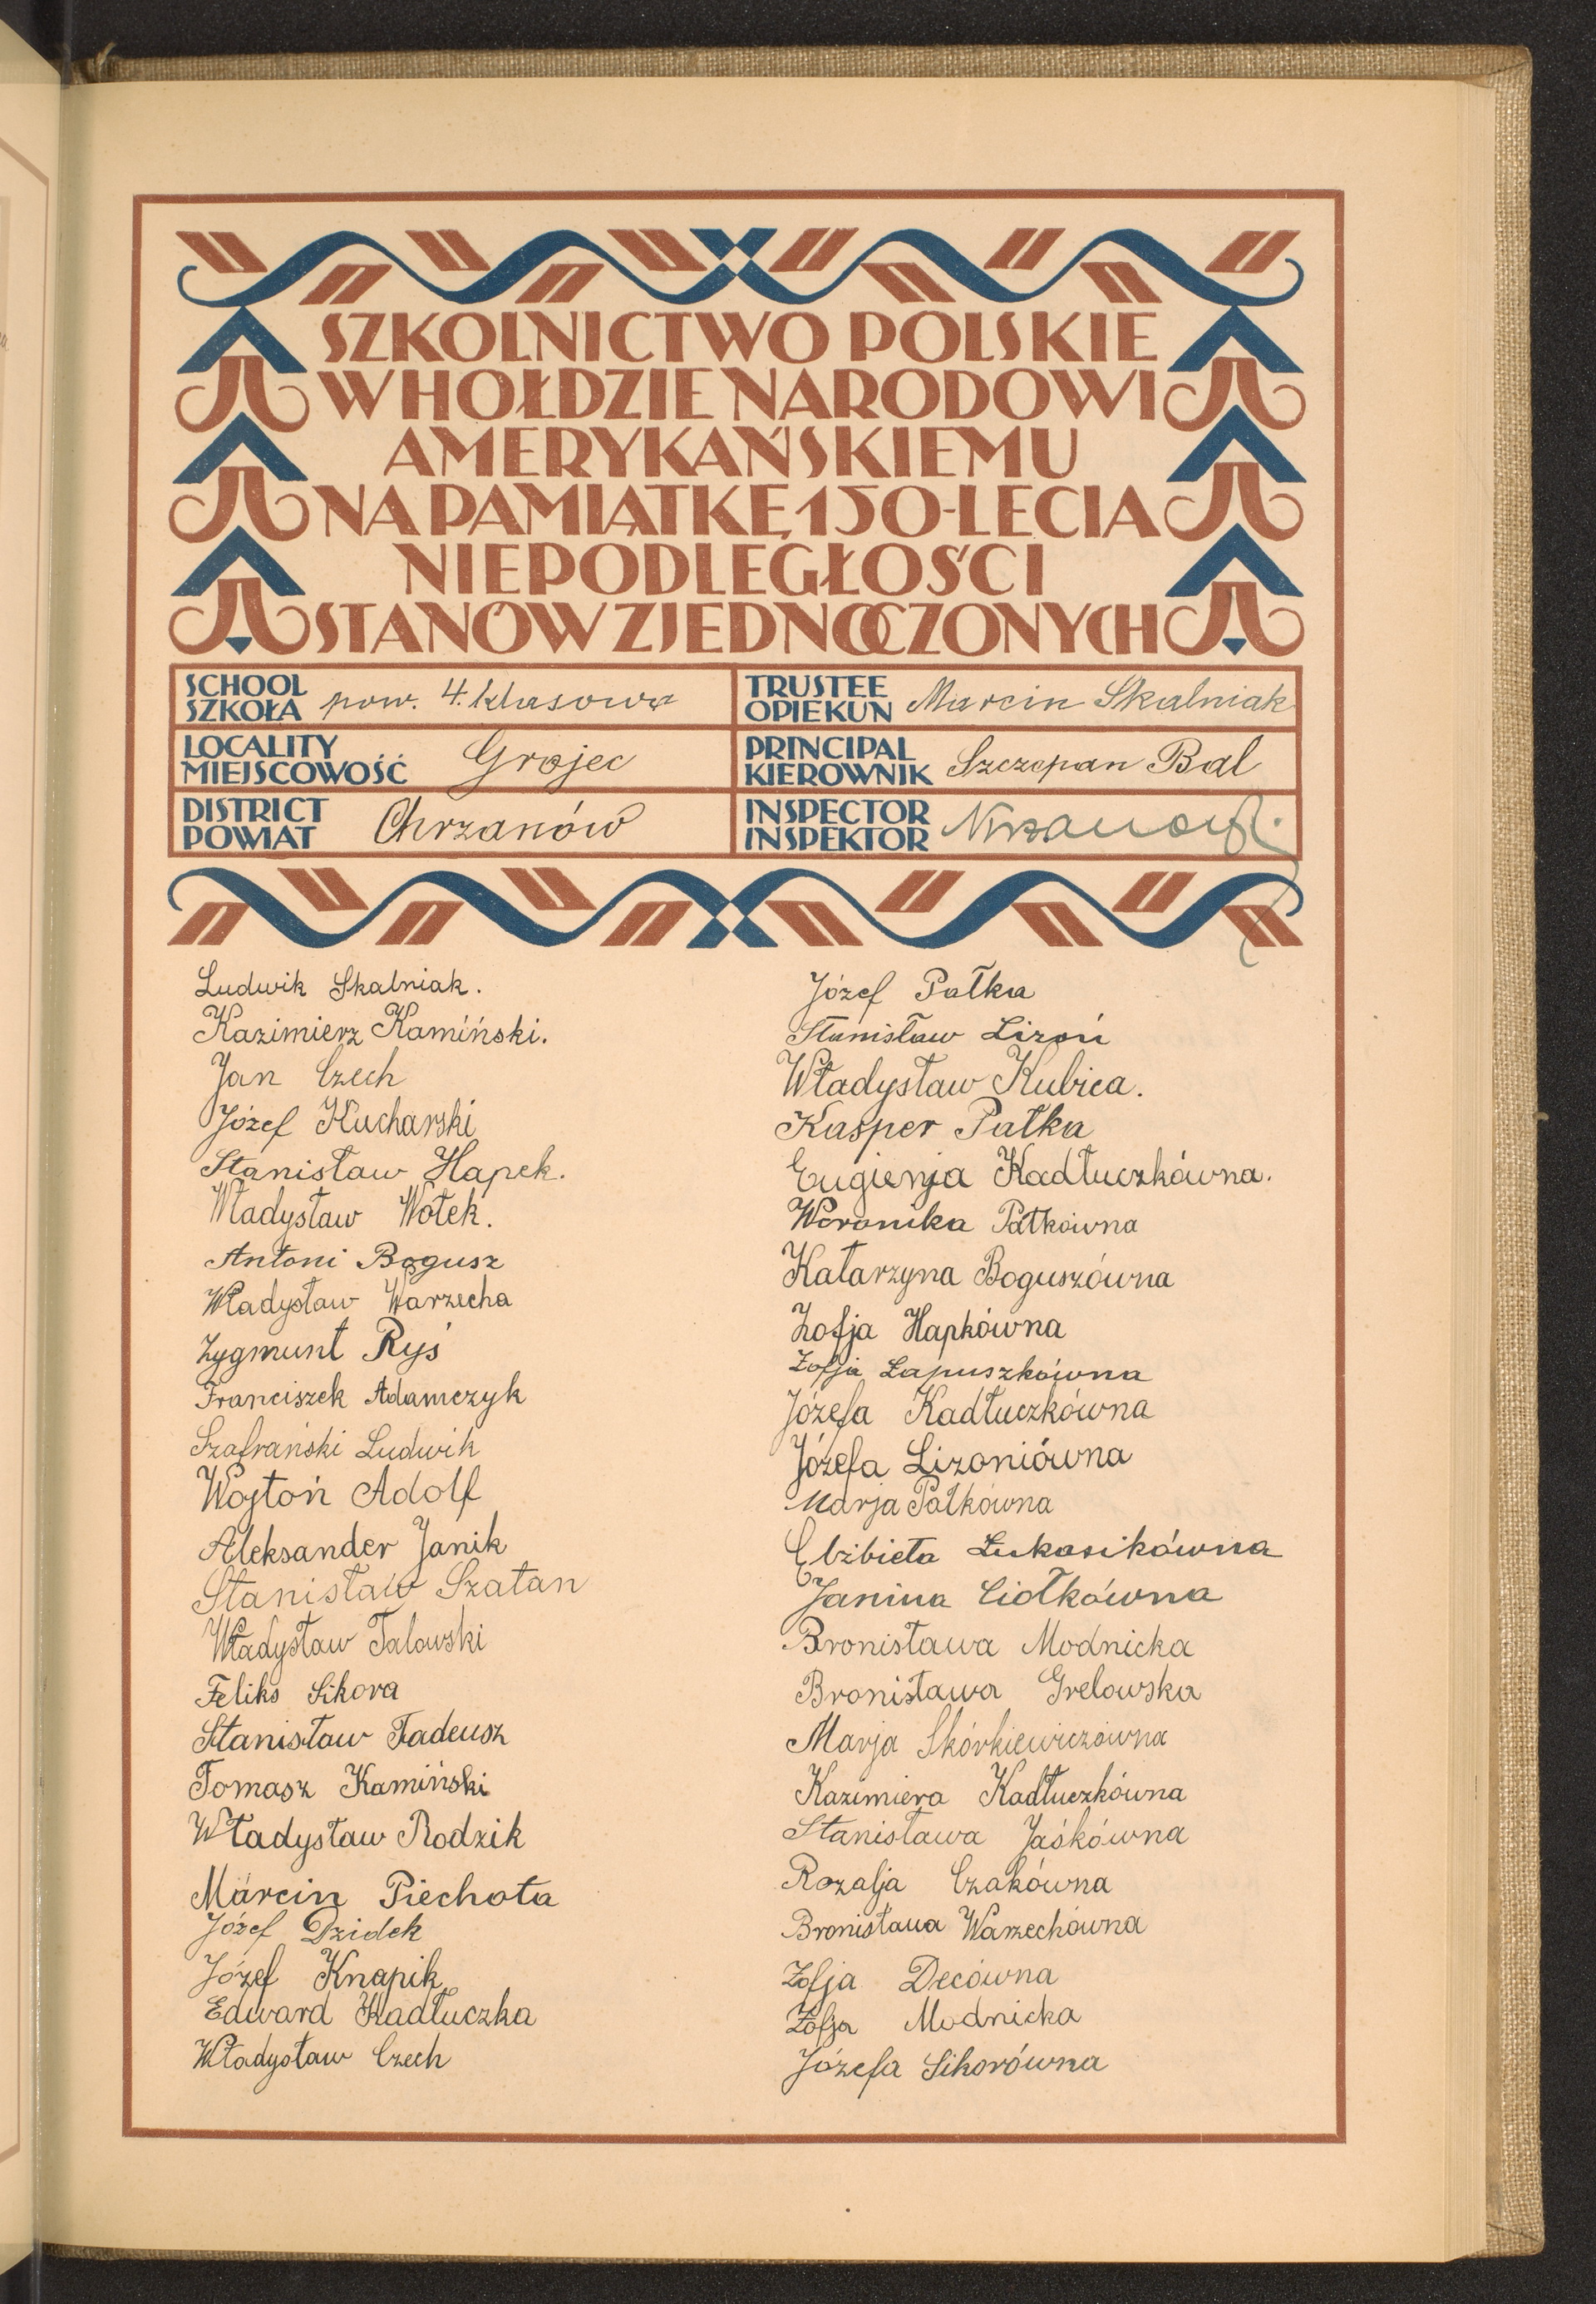 SZKOLNICTWO POLSKIE
W HOŁDZIE NARODOWI
AMERYKAŃSKIEMU
NA PAMIĄTKĘ 150-LECIA
NIEPODLEGŁOŚCI
STANÓW ZJEDNOCZONYCH
SCHOOL
SZKOŁA pow. 4. klasowa
TRUSTEE
OPIEKUN Marcin Skalniak
LOCALITY
MIEJSCOWOŚĆ Grojec
PRINCIPAL
KIEROWNIK Szczepan Bal
DISTRICT
POWIAT Chrzanów
INSPECTOR
INSPEKTOR
Ludwik Skalniak.
Kazimierz Kamiński.
Jan Czech
Józef Kucharski
Stanisław Hapek.
Władysław Wołek.
Antoni Bogusz
Władysław Warzecha
Zygmunt Ryś
Franciszek Adamczyk
Szafrański Ludwik
Wojtoń Adolf
Aleksander Janik
Stanisław Szatan
Władysław Talowski
Feliks Sikora
Stanisław Tadeusz
Tomasz Kamiński
Władysław Rodzik
Marcin Piechota
Józef Dzidek
Józef Knapik
Edward Kadłuczka
Władysław Czech
Józef Pałka
Stanisław Lizoń
Władysław Kubica.
Kasper Pałka
Eugienja Kadłuczkówna.
Weronika Pałkówna
Katarzyna Boguszówna
Zofja Hapkówna
Zofja Łapuszkówna
Józefa Kadłuczkówna
Józefa Lizoniówna
Marja Pałkówna
Elżbieta Łukasikówna
Janina Ciołkówna
Bronisława Modnicka
Bronisława Grelowska
Marja Skórkiewiczówna
Kazimiera Kadłuczkówna
Stanisława Jaśkówna
Rozalja Czakówna
Bronisława Warzechówna
Zofja Decówna
Zofja Modnicka
Józefa Sikorówna